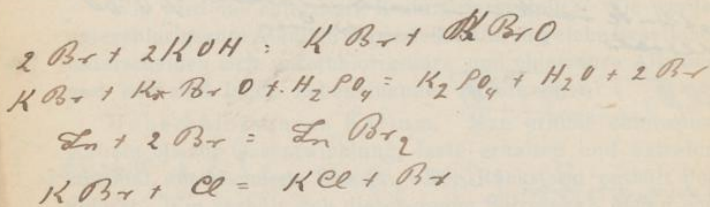 2 Br + 2KOH = K Br + KBrO
K Br + K Br O + H2SO4 = K2SO4 + H2O + 2 Br
Zn + 2 Br = Zn Br2
K Br + Cl = KCl + Br